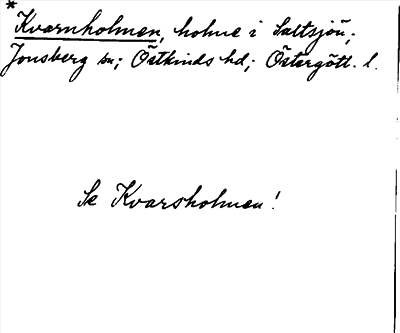 * Kvarnholmen, holme i Saltsjön;
Jonsberg sn; Östkinds hd; Östergötl. l.
Se Kvarsholmen!